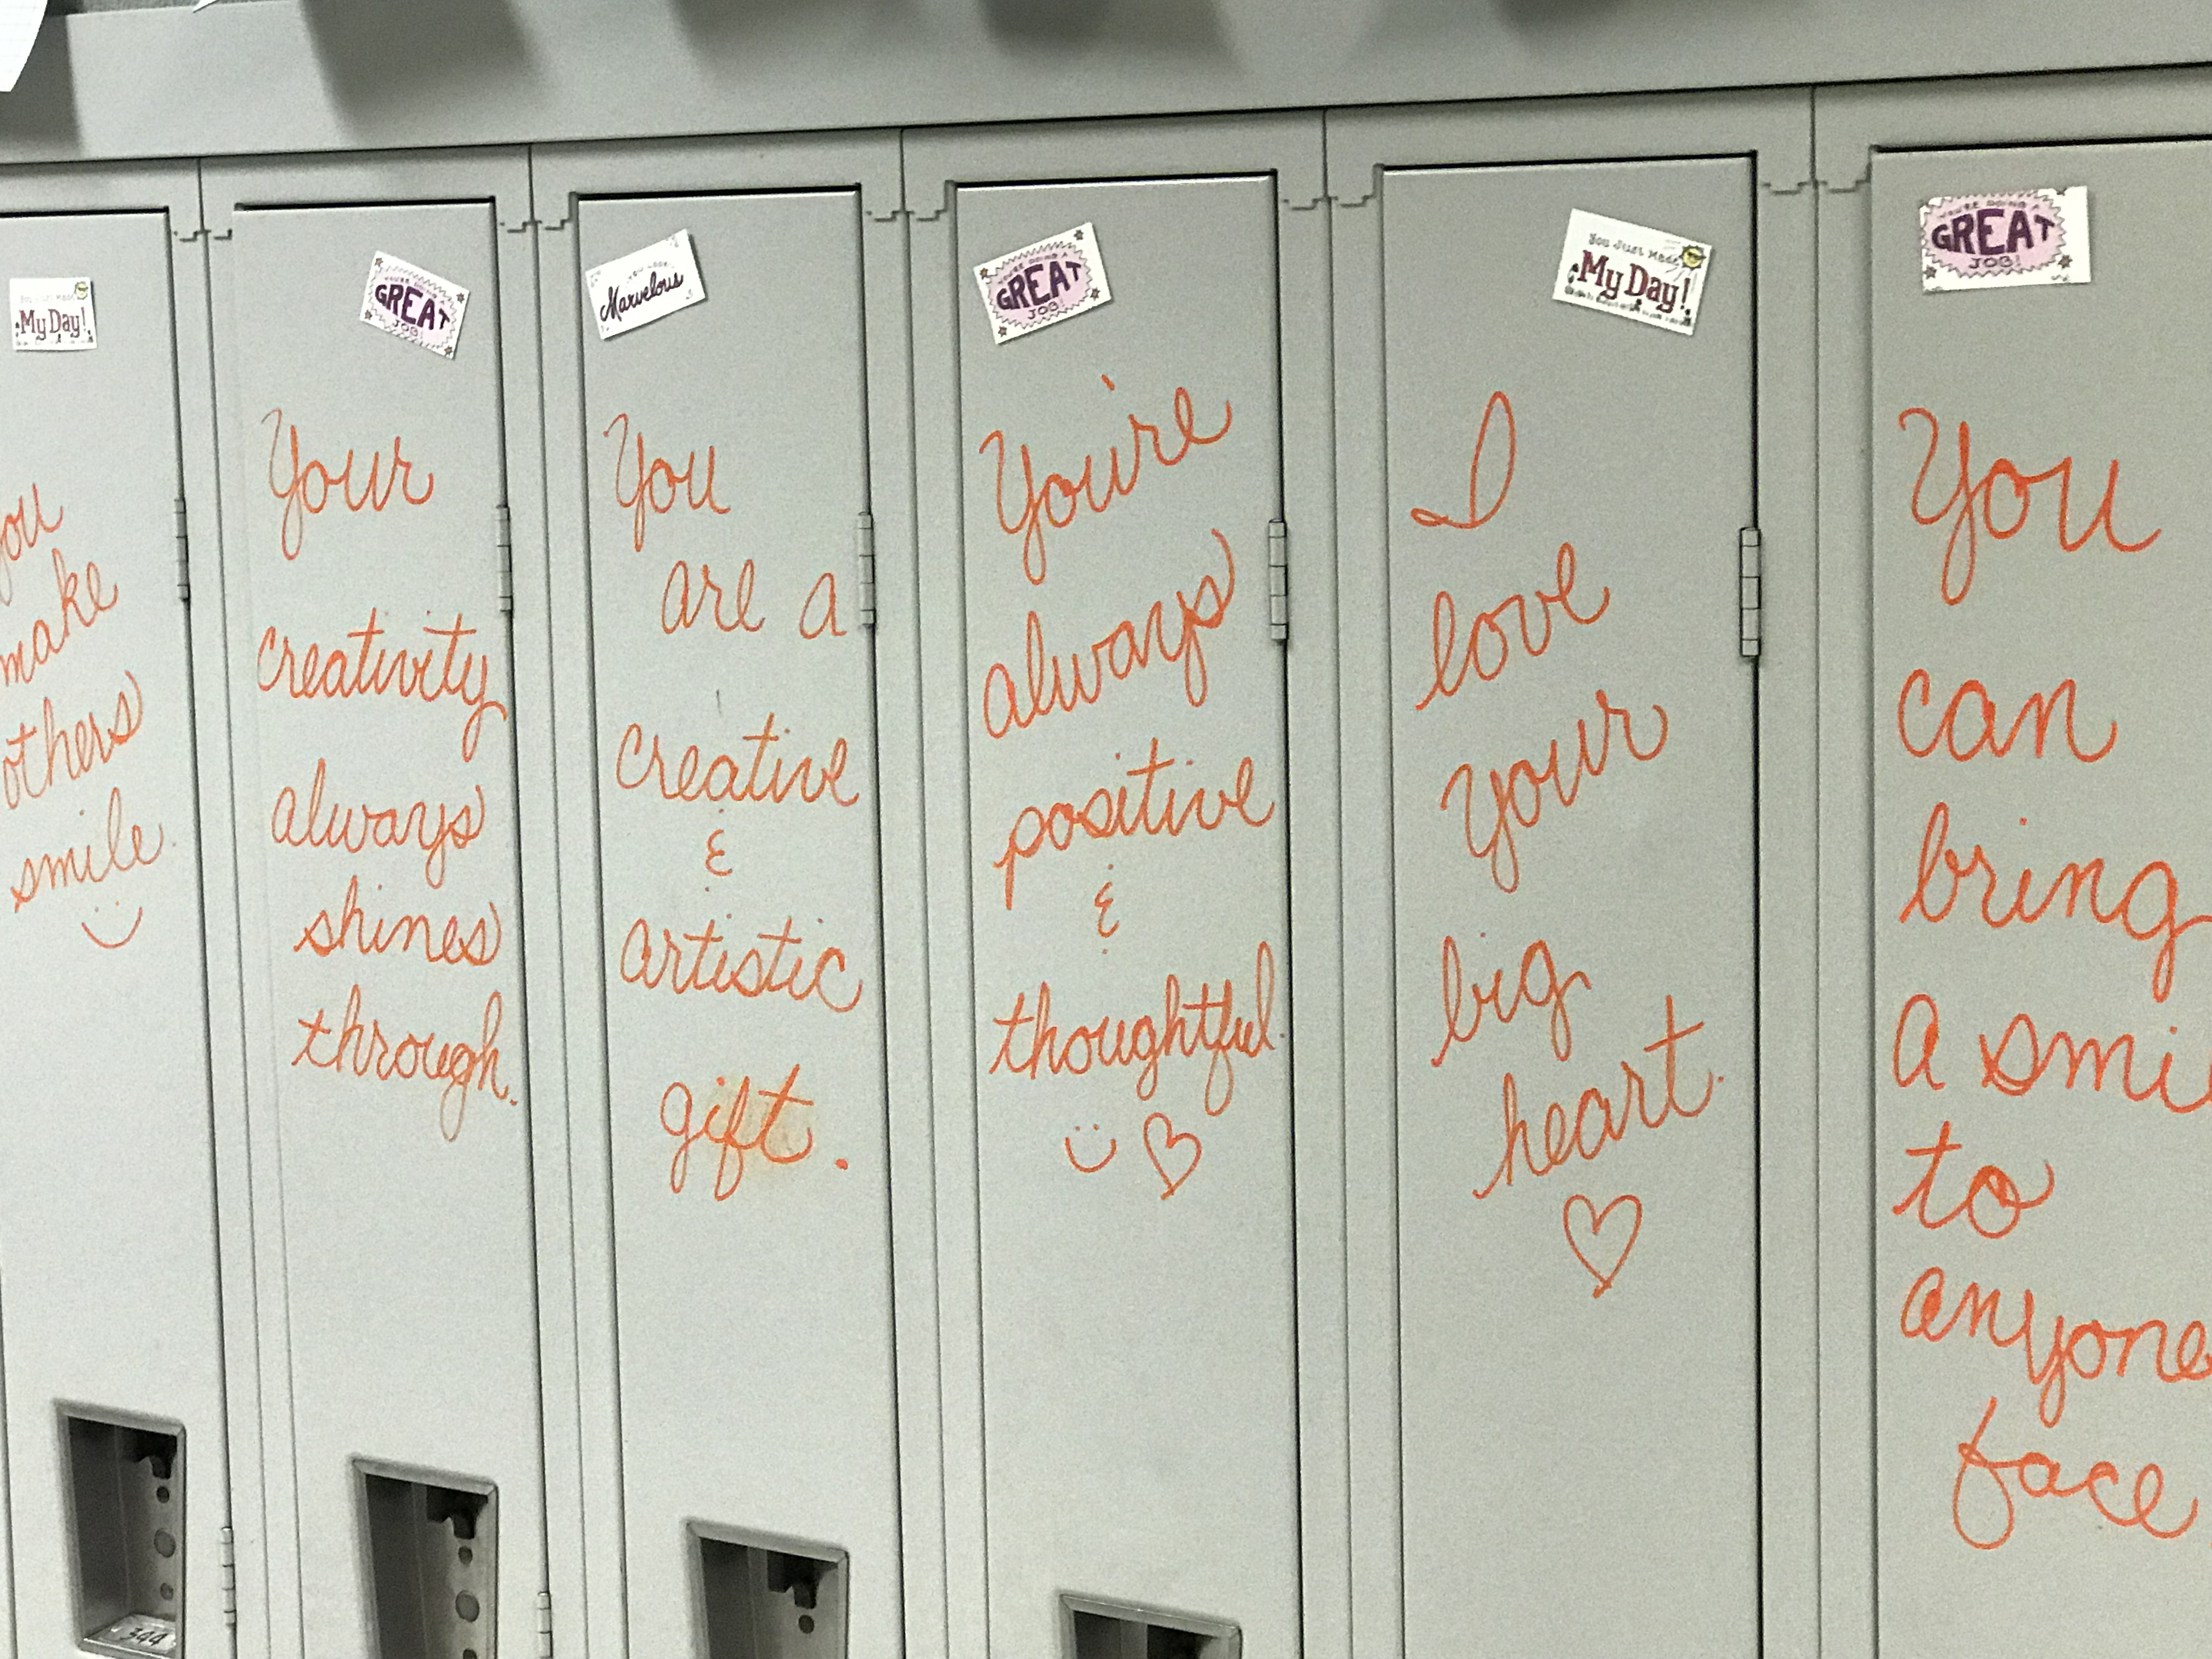 You Just Made
My Day!
you
make
others
smile.
344
YOU'RE DOING A
GREAT
JOB!
Your
creativity
always
shines
through.
Marvelous
You
are a
creative
&
artistic
gift.
YOU'RE DOING A
GREAT
JOB!
You're
always
positive
&
thoughtful.
You Just Made
My Day!
I
love
your
big
heart.
YOU'RE DOING A
GREAT
JOB!
You
can
bring
a smi
to
anyone
face